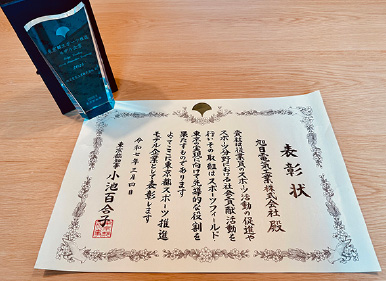 表彰状
旭日電気工業株式会社 殿
貴社は従業員のスポーツ活動の促進や
スポーツ分野における社会貢献活動を
行いその取組はスポーツフィールド・
東京実現に向け先導的な役割を
果たすものであります
よってここに東京都スポーツ推進
モデル企業として表彰します
令和七年三月四日
東京都知事 小池百合子